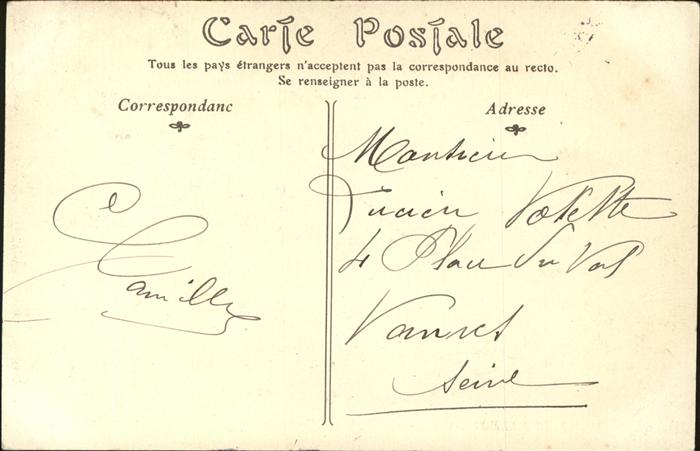 Carte Postale
Tous les pays étrangers n'acceptent pas la correspondance au recto.
Se renseigner à la poste.
Correspondanc
Adresse
Monsieur
Lucien
4 Place du Val
Vanves
Seine
Camille